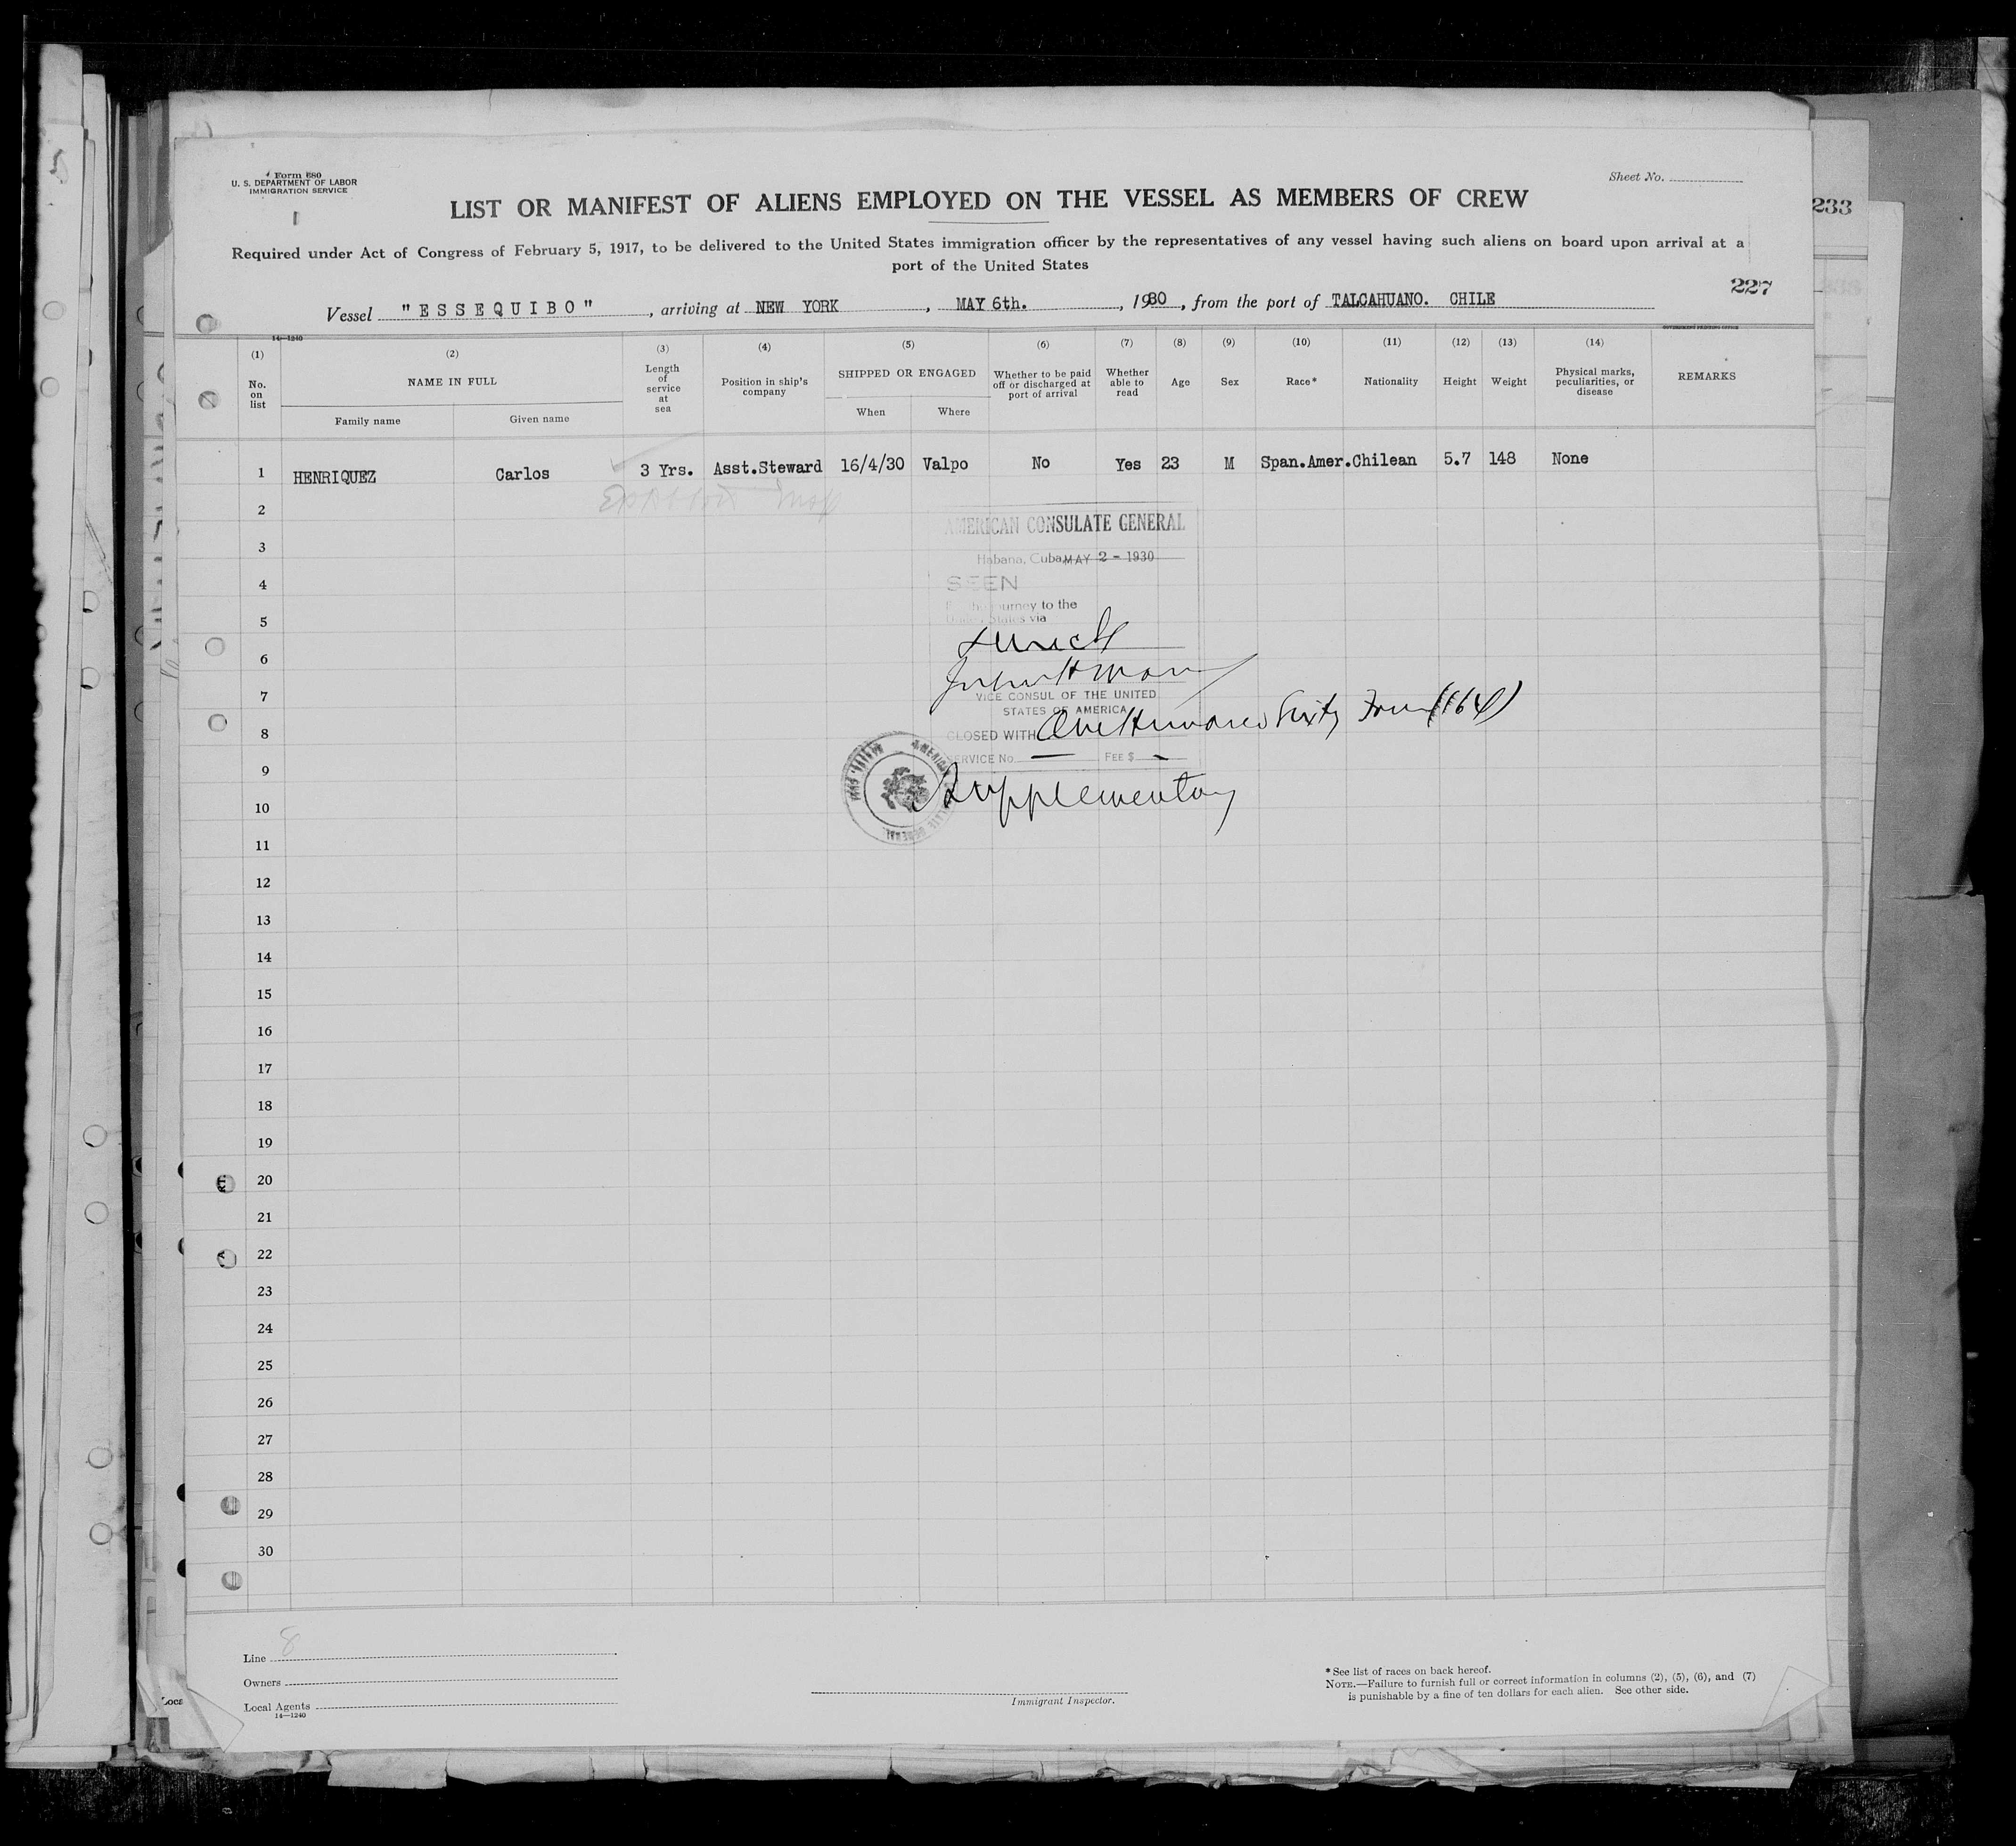 Form 680
U. S. DEPARTMENT OF LABOR
IMMIGRATION SERVICE
Sheet No.
LIST OR MANIFEST OF ALIENS EMPLOYED ON THE VESSEL AS MEMBERS OF CREW
233
Required under Act of Congress of February 5, 1917, to be delivered to the United States immigration officer by the representatives of any vessel having such aliens on board upon arrival at a
port of the United States
227
Vessel "ESSEQUIBO", arriving at NEW YORK, MAY 6th., 1930, from the port of TALCAHUANO. CHILE
14—1240
GOVERNMENT PRINTING OFFICE
(1) (2) (3) (4) (5) (6) (7) (8) (9) (10) (11) (12) (13) (14)
No. on list
NAME IN FULL
Family name
Given name
Length of service at sea
Position in ship's company
SHIPPED OR ENGAGED
When
Where
Whether to be paid off or discharged at port of arrival
Whether able to read
Age
Sex
Race*
Nationality
Height
Weight
Physical marks, peculiarities, or disease
REMARKS
1 HENRIQUEZ Carlos 3 Yrs. Asst.Steward 16/4/30 Valpo No Yes 23 M Span.Amer. Chilean 5.7 148 None
2
3
4
5
6
7
8
9
10
11
12
13
14
15
16
17
18
19
20
21
22
23
24
25
26
27
28
29
30
AMERICAN CONSULATE GENERAL
Habana, Cuba MAY 2 - 1930
SEEN
journey to the
United States via
VICE CONSUL OF THE UNITED
STATES OF AMERICA
CLOSED WITH One Hundred Sixty Four (164)
SERVICE No. — FEE $ -
Supplementary
Line 8
Owners
Local Agents
14—1240
Immigrant Inspector.
* See list of races on back hereof.
NOTE.—Failure to furnish full or correct information in columns (2), (5), (6), and (7)
is punishable by a fine of ten dollars for each alien. See other side.